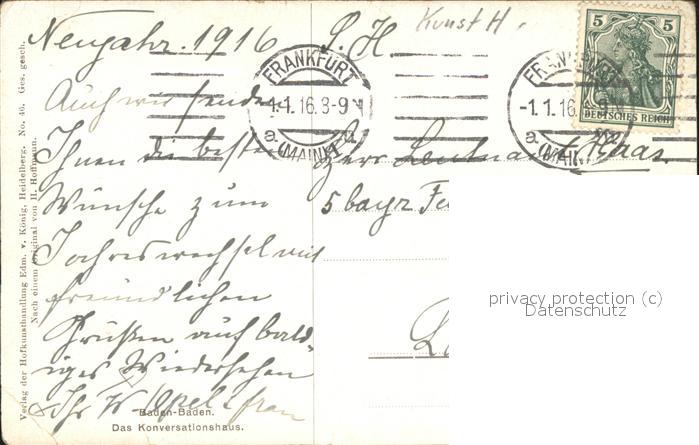 Neujahr. 1916
Auch wir senden
Ihnen die besten
Wünsche zum
Jahreswechsel mit
freundlichen
Grüßen auf bald-
iges Wiedersehen
Ihr W Opel & frau
S. H.
Kunst H.
Herr Leutnant Haas
5 bayr
FRANKFURT
1.1.16.8-9N
a (MAIN)
FRANKFURT
-1.1.16.
9N
a (MAIN)
5 5
DEUTSCHES REICH
privacy protection (c)
Datenschutz
Baden-Baden.
Das Konversationshaus.
Verlag der Hofkunsthandlung Edm. v. König, Heidelberg. No. 46. Ges. gesch.
Nach einem Original von H. Hoffmann.